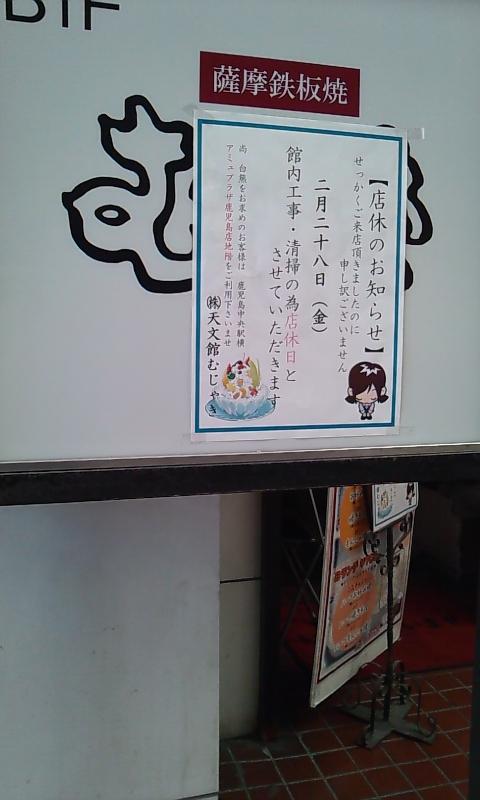 B1F
薩摩鉄板焼
【店休のお知らせ】
せっかくご来店頂きましたのに
申し訳ございません
二月二十八日（金）
館内工事・清掃の為店休日と
させていただきます
尚　白熊をお求めのお客様は　鹿児島中央駅横
アミュプラザ鹿児島店地階をご利用下さいませ
㈱天文館むじゃき